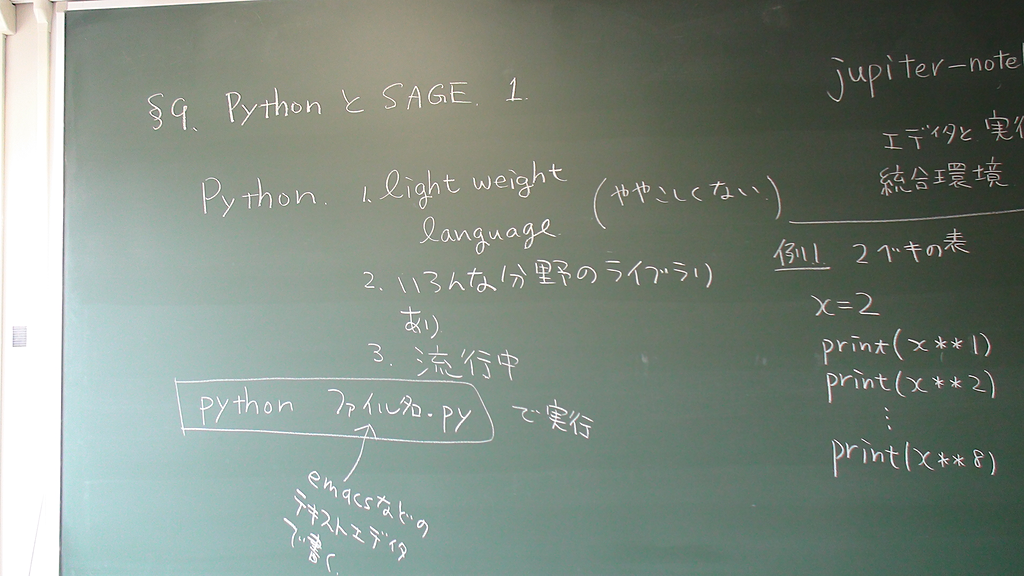 §9. Python と SAGE. 1
Python. 1. light weight
language (ややこしくない)
2. いろんな分野のライブラリ
あり
3. 流行中
python ファイル名.py で実行
emacsなどの
テキストエディタ
で書く.
jupiter-note
エディタと実行
統合環境
例1. 2ベキの表
x=2
print(x**1)
print(x**2)
⋮
print(x**8)